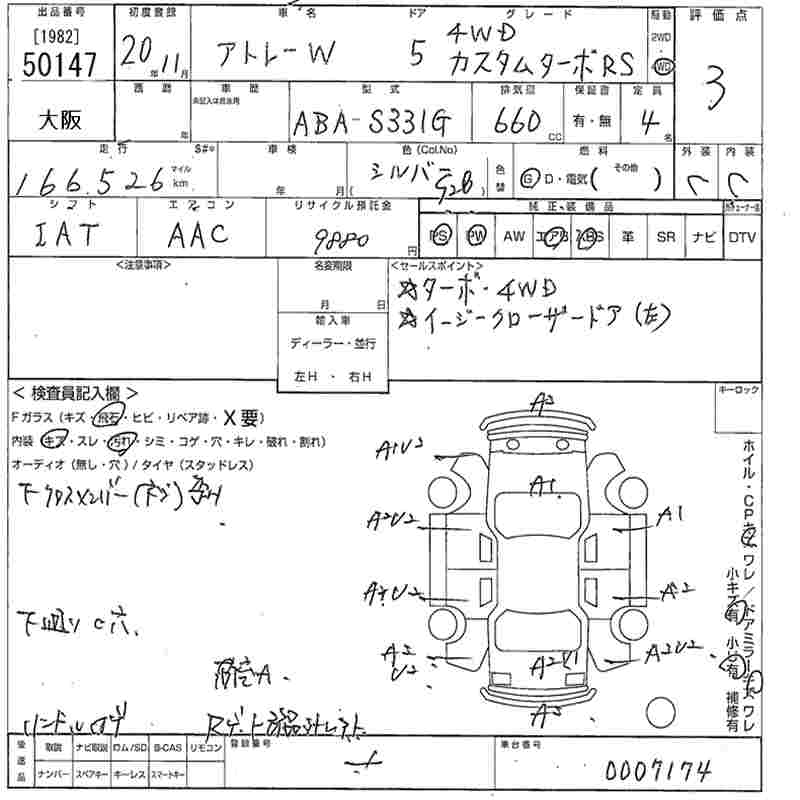 出品番号 初度登録 車名 ドア グレード 駆動 評価点
[1982]
50147 20年 11月 アトレーW 5 4WD カスタムターボRS 2WD 4WD 3
大阪 西暦 年 車歴 未記入は自家用 型式 ABA-S331G 排気量 660 CC 保証書 有・無 定員 4名
走行 $#* 車検 色(Col.No) 燃料 外装 内装
166,526 マイル km 年 月 シルバー ( S28 ) 色替 G D・電気( その他 ) C C
シフト エアコン リサイクル預託金 純正装備品
IAT AAC 9880 円 PS PW AW エアB ABS 革 SR ナビ DTV
<注意事項> 名変期限 <セールスポイント>
月 日
☆ターボ・4WD
☆イージークローザードア(左)
輸入車
ディーラー・並行
左H ・ 右H
< 検査員記入欄 > キーロック
Fガラス(キズ・飛石・ヒビ・リペア跡・X要)
内装(キズ・スレ・汚れ・シミ・コゲ・穴・キレ・破れ・割れ)
オーディオ(無し・穴)/タイヤ(スタッドレス)
下クロスメンバー
下廻り C穴
A2
A1U2
A1
A2U2 A1
A2U2 A2
A2
U2 A2U1 A2U2
A2
ホイル・CPキズ ワレ/ドアミラーキズ ワレ
小キズ有 小U有 補修有
ハンドル
後送品 取説 ナビ取説 ロム/SD B-CAS リモコン 登録番号 車台番号
ナンバー スペアキー キーレス スマートキー 0007174